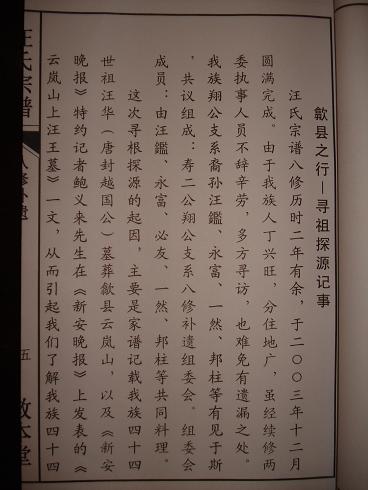 歙县之行—寻祖探源记事
汪氏宗谱八修历时二年有余，于二〇〇三年十二月
圆满完成。由于我族人丁兴旺，分住地广，虽经续修两
委执事人员不辞辛劳，多方寻访，也难免有遗漏之处。
我族翔公支系裔孙汪鑑、永富、一然、邦柱等有见于斯
，共议组成：寿二公翔公支系八修补遗组委会。组委会
成员：由汪鑑、永富、必友、一然、邦柱等共同料理。
这次寻根探源的起因，主要是家谱记载我族四十四
世祖汪华（唐封越国公）墓葬歙县云岚山，以及《新安
晚报》特约记者鲍义来先生在《新安晚报》上发表的《
云岚山上汪王墓》一文，从而引起我们了解我族四十四
汪氏宗谱
八修补遗
五
敦本堂